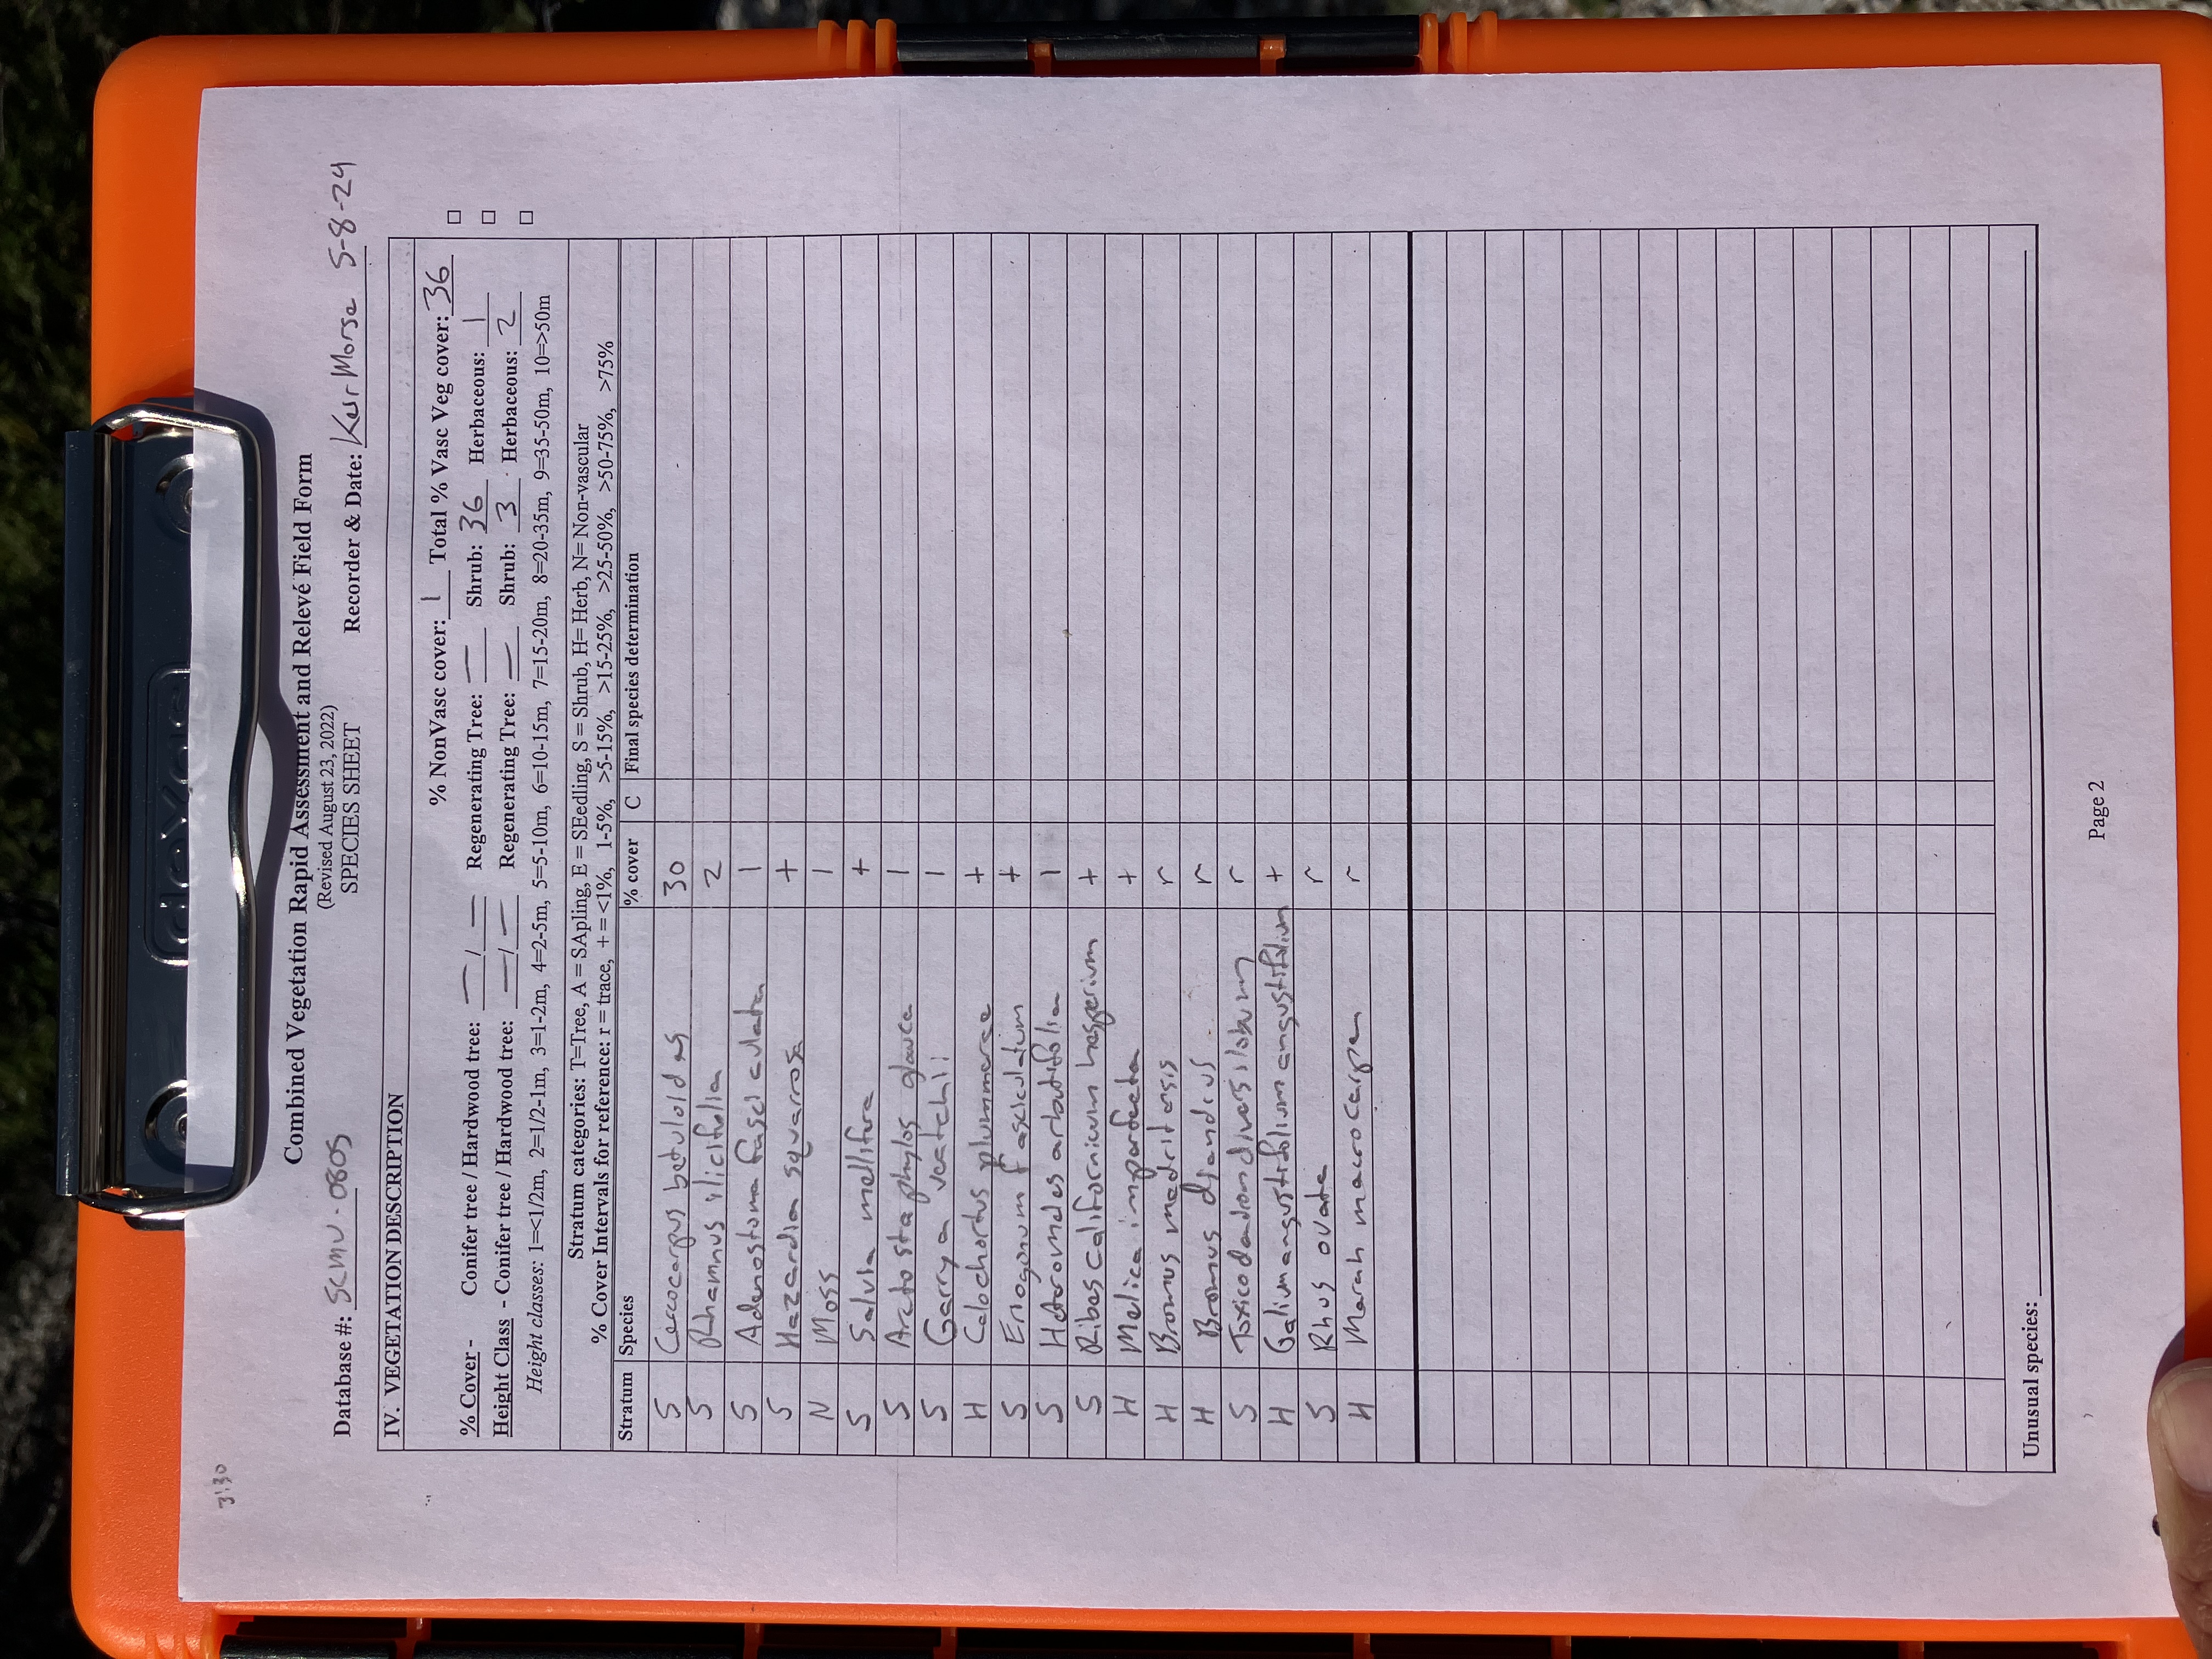 3:30
Combined Vegetation Rapid Assessment and Relevé Field Form
(Revised August 23, 2022)
SPECIES SHEET
Database #: SCMU-0805 Recorder & Date: Keir Morse 5-8-24
IV. VEGETATION DESCRIPTION
% NonVasc cover: 1 Total % Vasc Veg cover: 36 □
% Cover - Conifer tree / Hardwood tree: — / — Regenerating Tree: — Shrub: 36 Herbaceous: 1 □
Height Class - Conifer tree / Hardwood tree: — / — Regenerating Tree: — Shrub: 3 Herbaceous: 2 □
Height classes: 1=<1/2m, 2=1/2-1m, 3=1-2m, 4=2-5m, 5=5-10m, 6=10-15m, 7=15-20m, 8=20-35m, 9=35-50m, 10=>50m
Stratum categories: T=Tree, A = SApling, E = SEedling, S = Shrub, H= Herb, N= Non-vascular
% Cover Intervals for reference: r = trace, + = <1%, 1-5%, >5-15%, >15-25%, >25-50%, >50-75%, >75%
Stratum Species % cover C Final species determination
S Cercocarpus betuloides 30
S Rhamnus ilicifolia 2
S Adenostoma fasciculata 1
S Hazardia squarrosa +
N Moss 1
S Salvia mellifera +
S Arctostaphylos glauca 1
S Garrya veatchii 1
H Calochortus plummerae +
S Eriogonum fasciculatum +
S Heteromeles arbutifolia 1
S Ribes californicum hesperium +
H Melica imperfecta +
H Bromus madritensis r
H Bromus diandrus r
S Toxicodendron diversilobum r
H Galium angustifolium angustifolium +
S Rhus ovata r
H Marah macrocarpa r
Unusual species:
Page 2